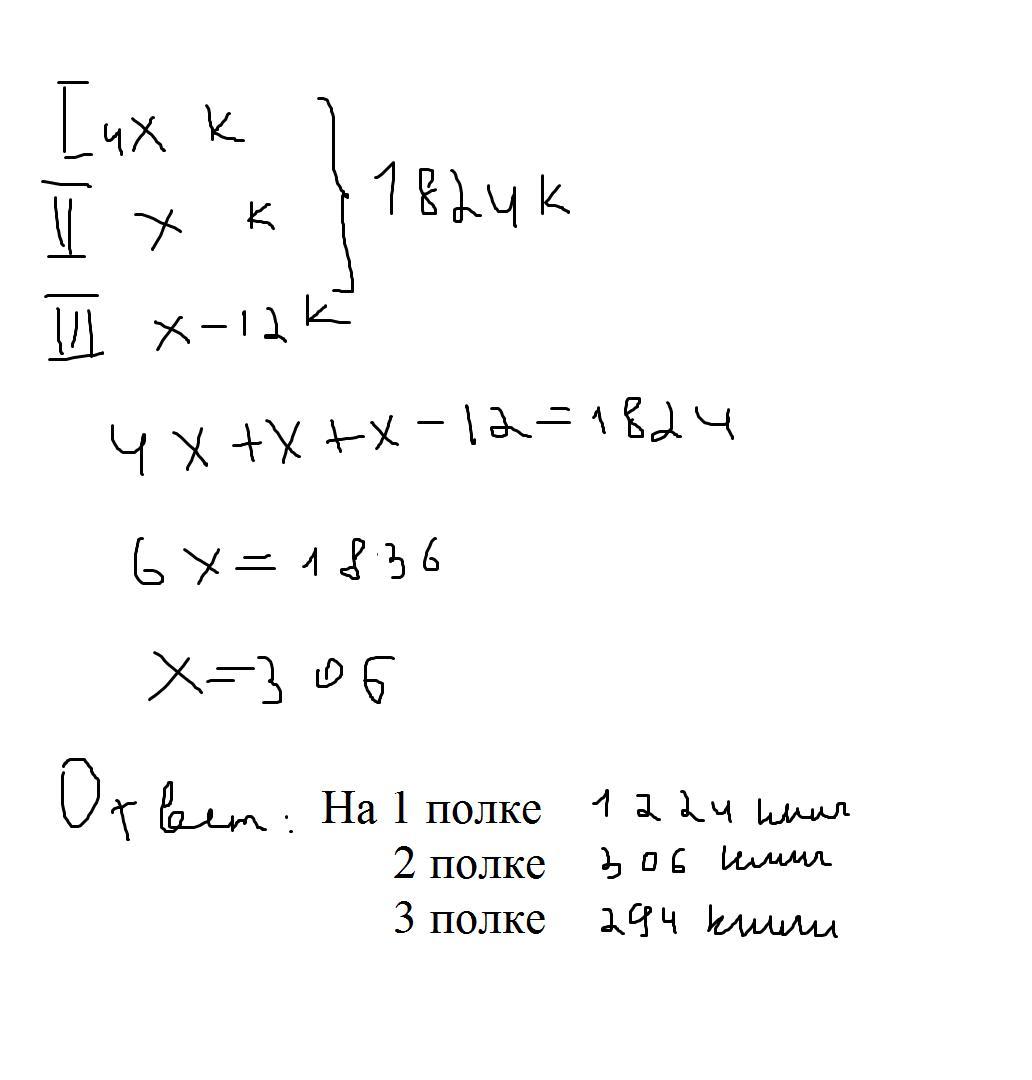 I 4x к
II x к } 1824к
III x-12 к
4x+x+x-12=1824
6x=1836
x=306
Ответ: На 1 полке 1224 книг
2 полке 306 книг
3 полке 294 книги